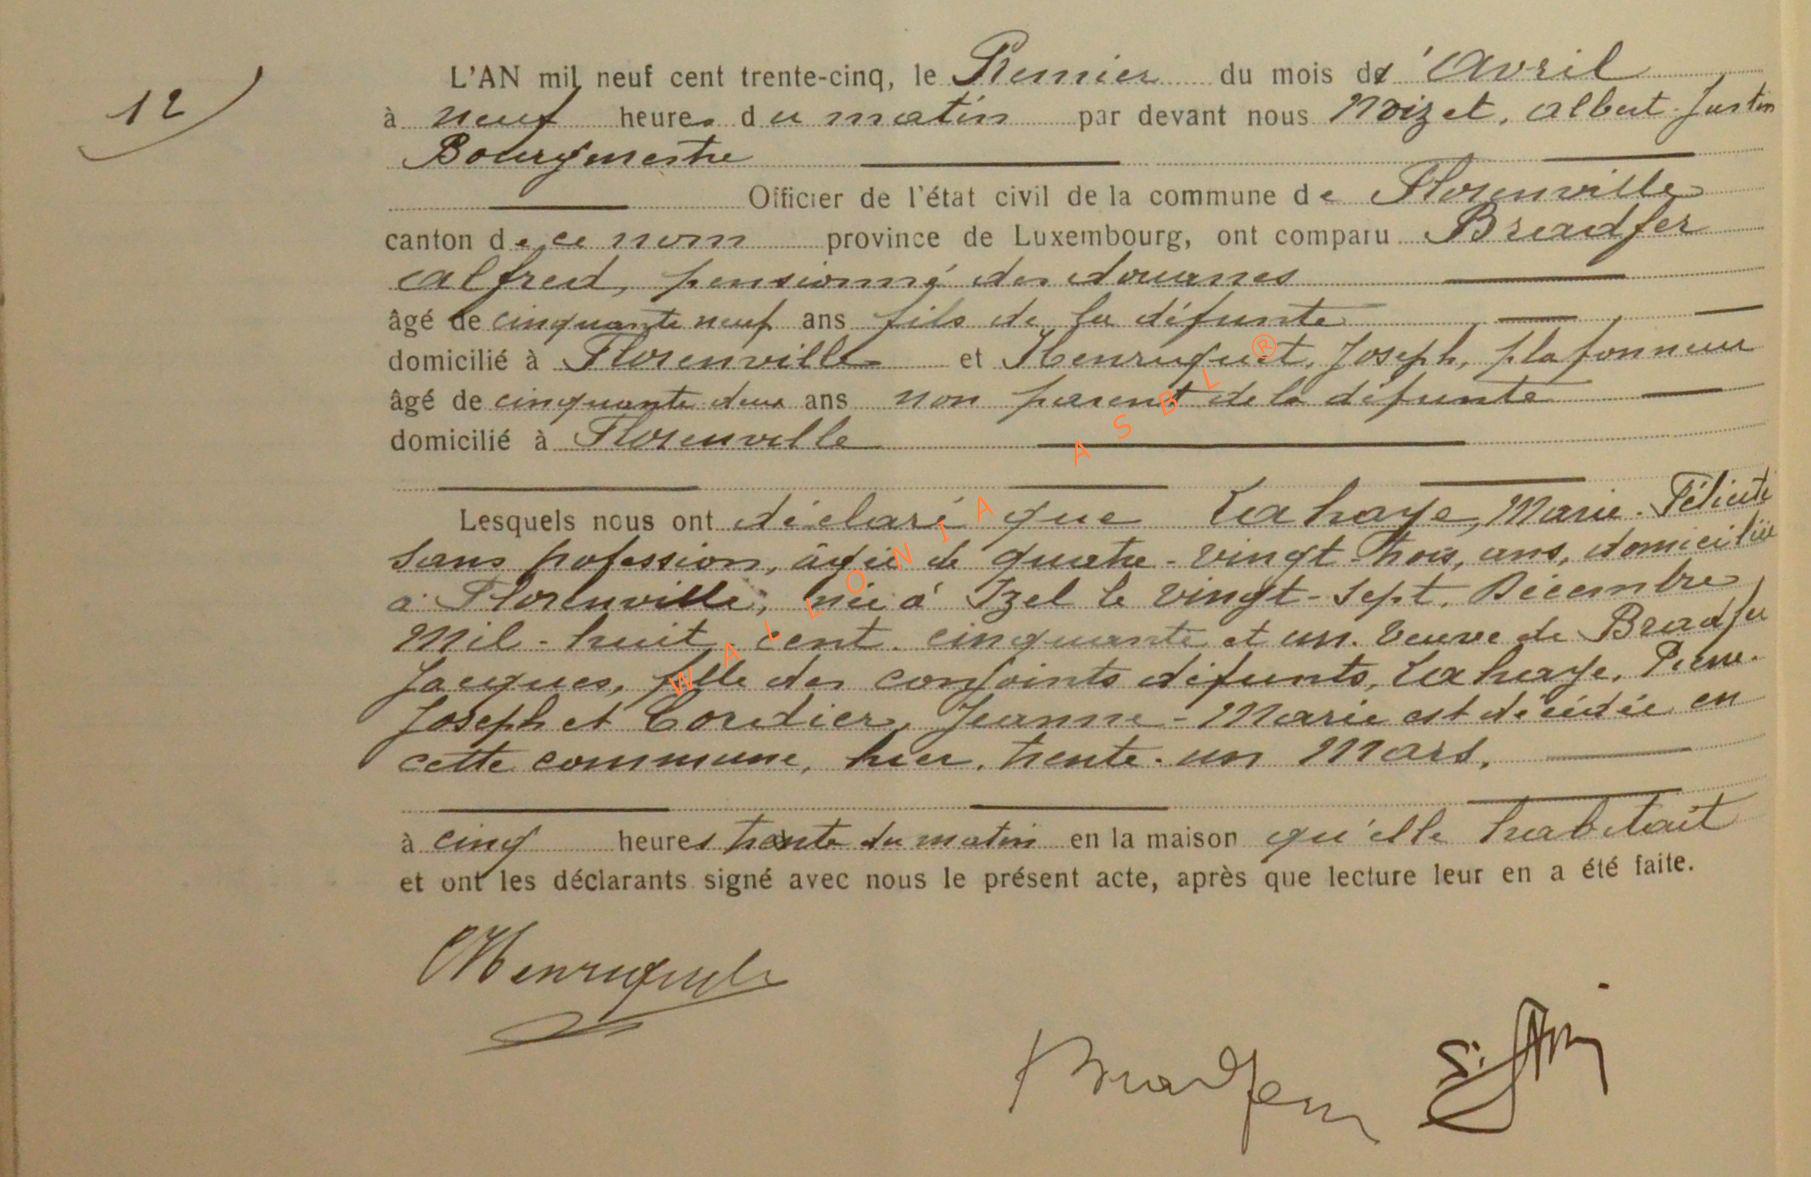 12
L'AN mil neuf cent trente-cinq, le Premier du mois d'Avril
à neuf heures du matin par devant nous Noizet, Albert-Justin
Bourgmestre
Officier de l'état civil de la commune de Florenville
canton de ce nom province de Luxembourg, ont comparu Bradfer
Alfred, pensionné des douanes
âgé de cinquante neuf ans fils de la défunte
domicilié à Florenville et Henruquet, Joseph, plafonneur
âgé de cinquante deux ans non parent de la défunte
domicilié à Florenville
Lesquels nous ont déclaré que Lahaye, Marie-Félicité
sans profession, âgée de quatre-vingt-trois, ans, domiciliée
à Florenville, née à Izel le vingt-sept Décembre
mil-huit cent cinquante et un. Veuve de Bradfer
Jacques, fille des conjoints défunts, Lahaye, Pierre-
Joseph et Cordier, Jeanne-Marie est décédée en
cette commune, hier, trente-un Mars.
à cinq heures trente du matin en la maison qu'elle habitait
et ont les déclarants signé avec nous le présent acte, après que lecture leur en a été faite.
Bradfer
WALLONIA ASBL ®